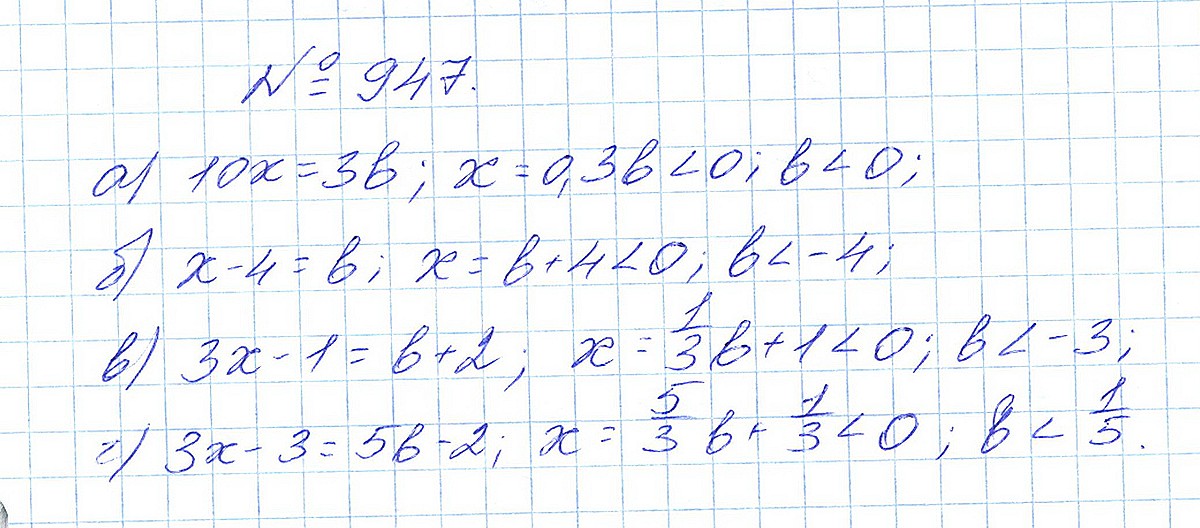 № 947.
а) 10x = 3b; x = 0,3b < 0; b < 0;
б) x - 4 = b; x = b + 4 < 0; b < -4;
в) 3x - 1 = b + 2; x = 1/3 b + 1 < 0; b < -3;
г) 3x - 3 = 5b - 2; x = 5/3 b + 1/3 < 0; b < 1/5.